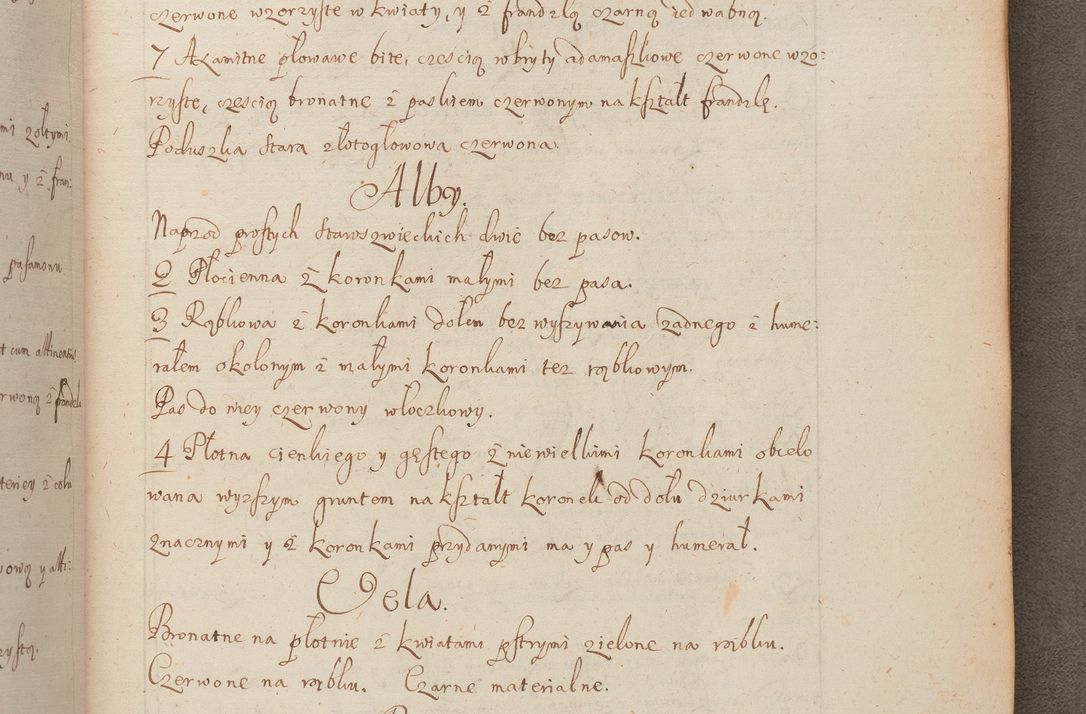 czerwone wzorzyste w kwiaty, y z frandzlą czarną jedwabną.
7 Axamitne płowawe bite, częścią w bryty adamaszkowe czerwone wzo:
rzyste, częścią bronatne z paskiem czerwonym na kształt frandzlę.
Poduszka stara złotogłowowa czerwona.
Alby.
Naprzod prostych staroszwieckich dwie bez pasow.
2 Płocienna z koronkami małymi bez pasa.
3 Rąbkowa z koronkami dołem bez wyszywania żadnego z hume:
rałem okolonym z małymi koronkami tez rąbkowym.
Pas do niey czerwony włoczkowy.
4 Płotna cienkiego y gęstego z niewielkimi koronkami obcelo
wana wyrszym gruntem na kształt koronek od dołu dziurkami
znacznymi y z koronkami przydanymi ma y pas y humerał.
Vela.
Bronatne na płotnie z kwiatami pstrymi zielone na rąbku.
Czerwone na rąbku. Czarne materialne.
mi zołtymi
nu y z fran:
pasamonu
t cum attinentiis
rwoną z frandzlą
teriey z cołu
ową y atti:
zystą.